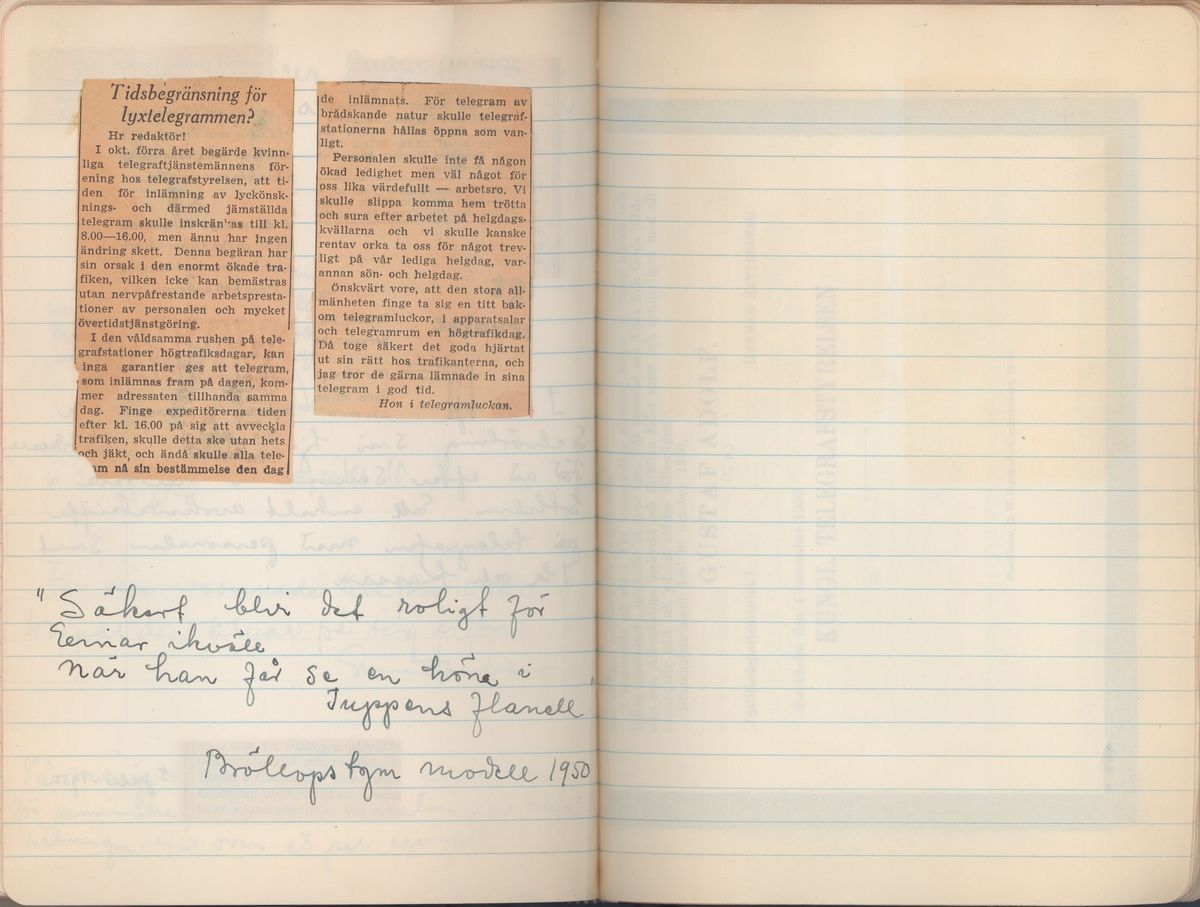 Tidsbegränsning för
lyxtelegrammen?
Hr redaktör!
I okt. förra året begärde kvinn-
liga telegraftjänstemännens för-
ening hos telegrafstyrelsen, att ti-
den för inlämning av lyckönsk-
nings- och därmed jämställda
telegram skulle inskrän'-as till kl.
8.00—16.00, men ännu har ingen
ändring skett. Denna begäran har
sin orsak i den enormt ökade tra-
fiken, vilken icke kan bemästras
utan nervpåfrestande arbetspresta-
tioner av personalen och mycket
övertidstjänstgöring.
I den våldsamma rushen på tele-
grafstationer högtrafiksdagar, kan
inga garantier ges att telegram,
som inlämnas fram på dagen, kom-
mer adressaten tillhanda samma
dag. Finge expeditörerna tiden
efter kl. 16.00 på sig att avveckla
trafiken, skulle detta ske utan hets
och jäkt, och ändå skulle alla tele-
am nå sin bestämmelse den dag
de inlämnats. För telegram av
brådskande natur skulle telegraf-
stationerna hållas öppna som van-
ligt.
Personalen skulle inte få någon
ökad ledighet men väl något för
oss lika värdefullt — arbetsro. Vi
skulle slippa komma hem trötta
och sura efter arbetet på helgdags-
kvällarna och vi skulle kanske
rentav orka ta oss för något trev-
ligt på vår lediga helgdag, var-
annan sön- och helgdag.
Önskvärt vore, att den stora all-
mänheten finge ta sig en titt bak-
om telegramluckor, i apparatsalar
och telegramrum en högtrafikdag.
Då toge säkert det goda hjärtat
ut sin rätt hos trafikanterna, och
jag tror de gärna lämnade in sina
telegram i god tid.
Hon i telegramluckan.
"Säkert blir det roligt för
Eeinar ikväll
när han får se en höna i
Tuppens flanell
Bröllopstgm modell 1950